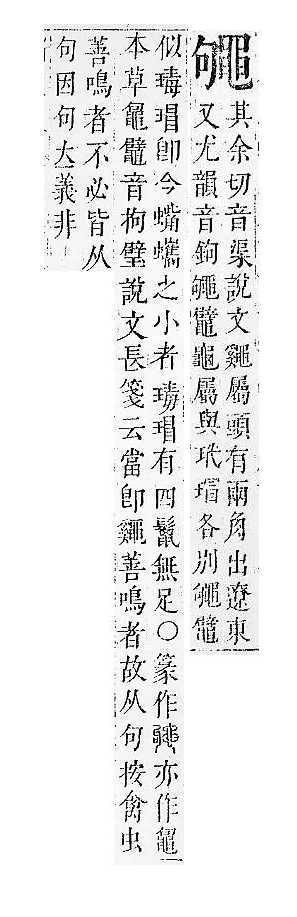 䵶
其余切音渠說文𪓷屬頭有兩角出遼東
又尤韻音鉤䵶鼊龜屬與玳瑁各別䵶鼊
似瑇瑁卽今蟕蠵之小者瑇瑁有四鬣無足○篆作亦作
本草鼊音拘壁說文長箋云當卽𪓷善鳴者故从句按禽虫
善鳴者不必皆从
句因句大義非